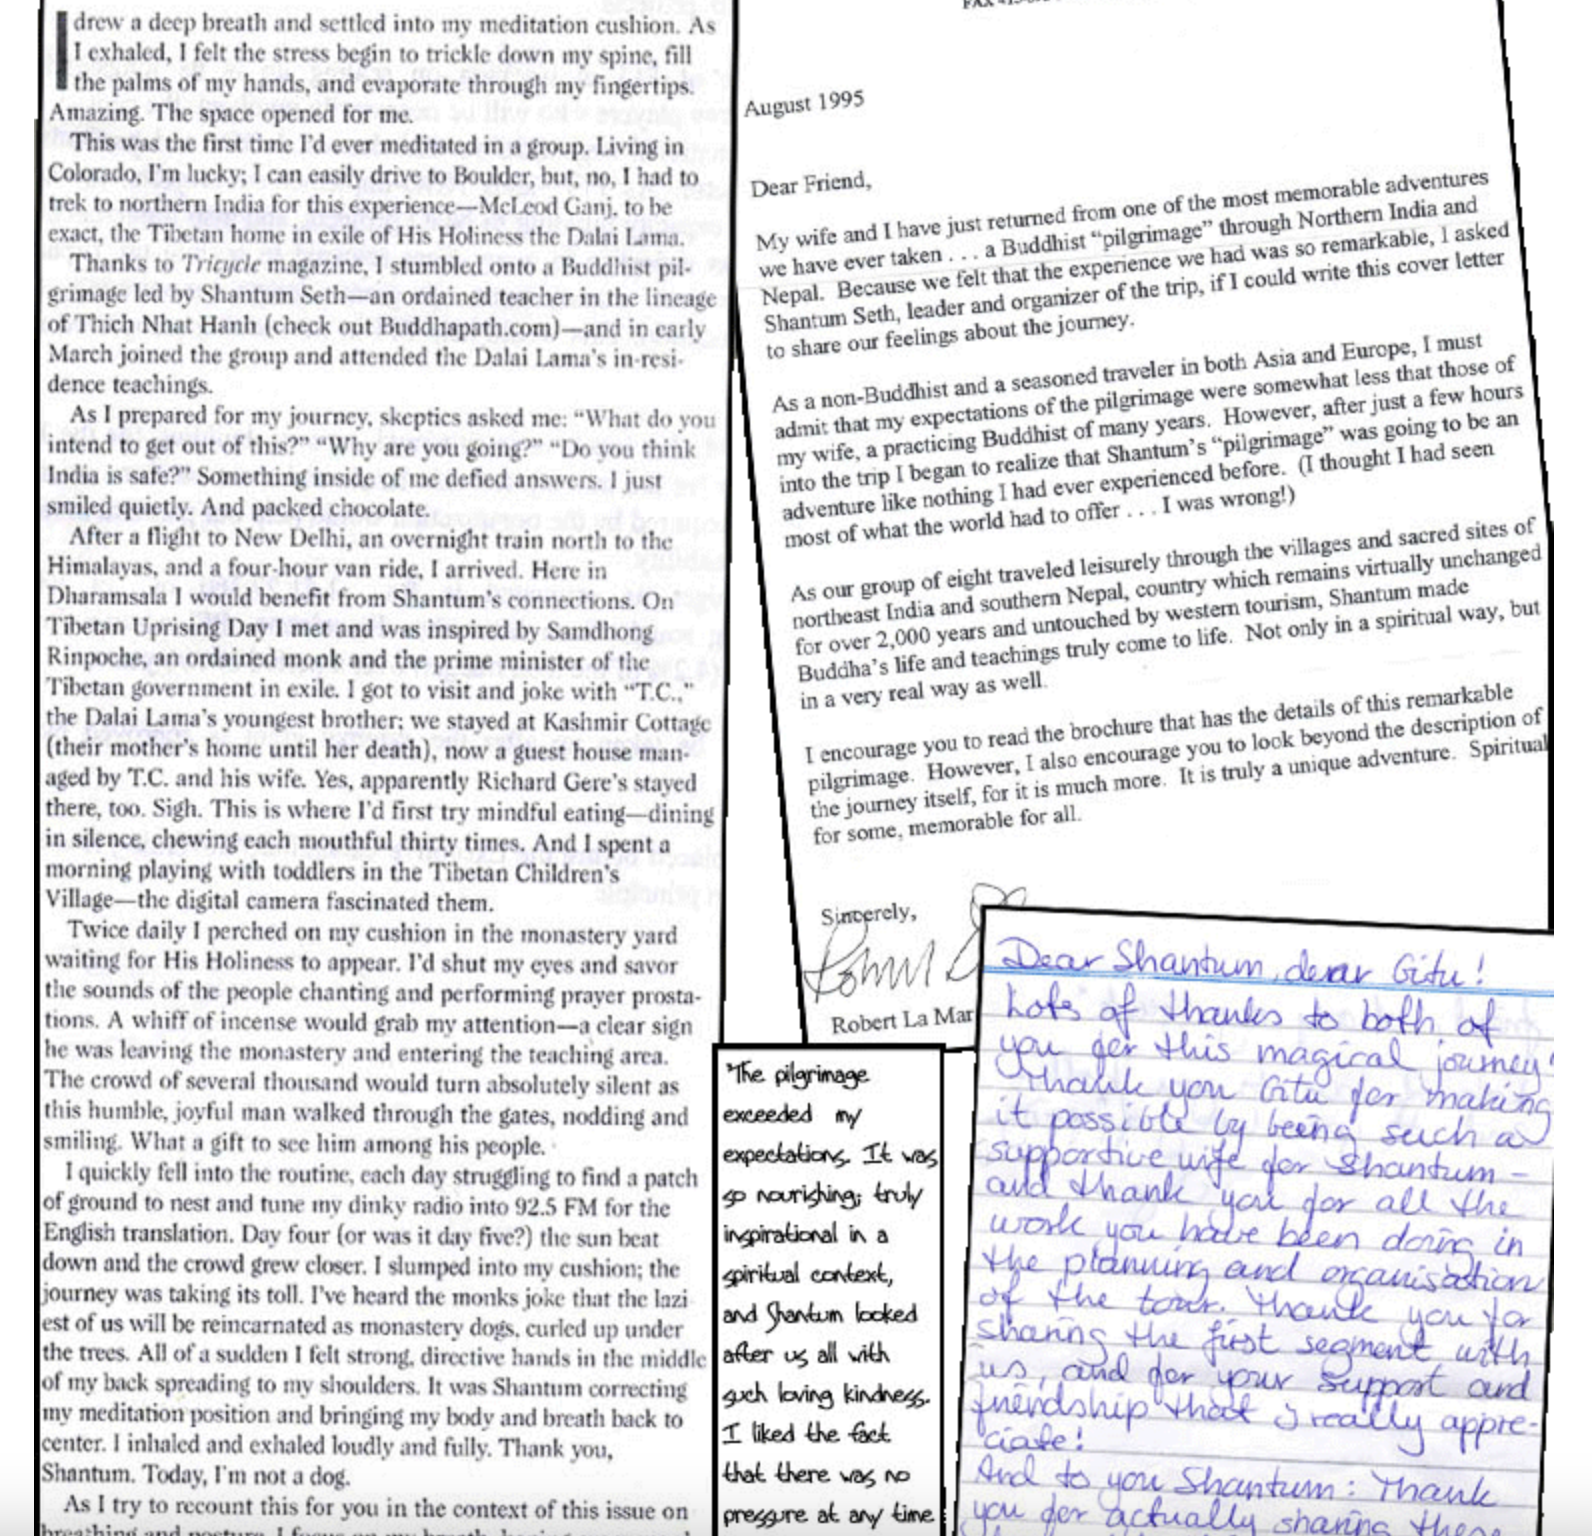 I drew a deep breath and settled into my meditation cushion. As
I exhaled, I felt the stress begin to trickle down my spine, fill
the palms of my hands, and evaporate through my fingertips.
Amazing. The space opened for me.
This was the first time I'd ever meditated in a group. Living in
Colorado, I'm lucky; I can easily drive to Boulder, but, no, I had to
trek to northern India for this experience—McLeod Ganj, to be
exact, the Tibetan home in exile of His Holiness the Dalai Lama.
Thanks to Tricycle magazine, I stumbled onto a Buddhist pil-
grimage led by Shantum Seth—an ordained teacher in the lineage
of Thich Nhat Hanh (check out Buddhapath.com)—and in early
March joined the group and attended the Dalai Lama's in-resi-
dence teachings.
As I prepared for my journey, skeptics asked me: "What do you
intend to get out of this?" "Why are you going?" "Do you think
India is safe?" Something inside of me defied answers. I just
smiled quietly. And packed chocolate.
After a flight to New Delhi, an overnight train north to the
Himalayas, and a four-hour van ride, I arrived. Here in
Dharamsala I would benefit from Shantum's connections. On
Tibetan Uprising Day I met and was inspired by Samdhong
Rinpoche, an ordained monk and the prime minister of the
Tibetan government in exile. I got to visit and joke with "T.C.,"
the Dalai Lama's youngest brother; we stayed at Kashmir Cottage
(their mother's home until her death), now a guest house man-
aged by T.C. and his wife. Yes, apparently Richard Gere's stayed
there, too. Sigh. This is where I'd first try mindful eating—dining
in silence, chewing each mouthful thirty times. And I spent a
morning playing with toddlers in the Tibetan Children's
Village—the digital camera fascinated them.
Twice daily I perched on my cushion in the monastery yard
waiting for His Holiness to appear. I'd shut my eyes and savor
the sounds of the people chanting and performing prayer prosta-
tions. A whiff of incense would grab my attention—a clear sign
he was leaving the monastery and entering the teaching area.
The crowd of several thousand would turn absolutely silent as
this humble, joyful man walked through the gates, nodding and
smiling. What a gift to see him among his people.
I quickly fell into the routine, each day struggling to find a patch
of ground to nest and tune my dinky radio into 92.5 FM for the
English translation. Day four (or was it day five?) the sun beat
down and the crowd grew closer. I slumped into my cushion; the
journey was taking its toll. I've heard the monks joke that the lazi
est of us will be reincarnated as monastery dogs, curled up under
the trees. All of a sudden I felt strong, directive hands in the middle
of my back spreading to my shoulders. It was Shantum correcting
my meditation position and bringing my body and breath back to
center. I inhaled and exhaled loudly and fully. Thank you,
Shantum. Today, I'm not a dog.
As I try to recount this for you in the context of this issue on
August 1995
Dear Friend,
My wife and I have just returned from one of the most memorable adventures
we have ever taken . . . a Buddhist "pilgrimage" through Northern India and
Nepal. Because we felt that the experience we had was so remarkable, I asked
Shantum Seth, leader and organizer of the trip, if I could write this cover letter
to share our feelings about the journey.
As a non-Buddhist and a seasoned traveler in both Asia and Europe, I must
admit that my expectations of the pilgrimage were somewhat less that those of
my wife, a practicing Buddhist of many years. However, after just a few hours
into the trip I began to realize that Shantum's "pilgrimage" was going to be an
adventure like nothing I had ever experienced before. (I thought I had seen
most of what the world had to offer . . . I was wrong!)
As our group of eight traveled leisurely through the villages and sacred sites of
northeast India and southern Nepal, country which remains virtually unchanged
for over 2,000 years and untouched by western tourism, Shantum made
Buddha's life and teachings truly come to life. Not only in a spiritual way, but
in a very real way as well.
I encourage you to read the brochure that has the details of this remarkable
pilgrimage. However, I also encourage you to look beyond the description of
the journey itself, for it is much more. It is truly a unique adventure. Spiritual
for some, memorable for all.
Sincerely,
Robert La Mar
"The pilgrimage
exceeded my
expectations. It was
so nourishing; truly
inspirational in a
spiritual context,
and Shantum looked
after us all with
such loving kindness.
I liked the fact
that there was no
pressure at any time
Dear Shantum, dear Gitu!
Lots of thanks to both of
you for this magical journey!
Thank you Gitu for making
it possible by being such a
supportive wife for Shantum -
and thank you for all the
work you have been doing in
the planning and organisation
of the tour. Thank you for
sharing the first segment with
us, and for your support and
friendship that I really appre-
ciate!
And to you Shantum: Thank
you for actually sharing these